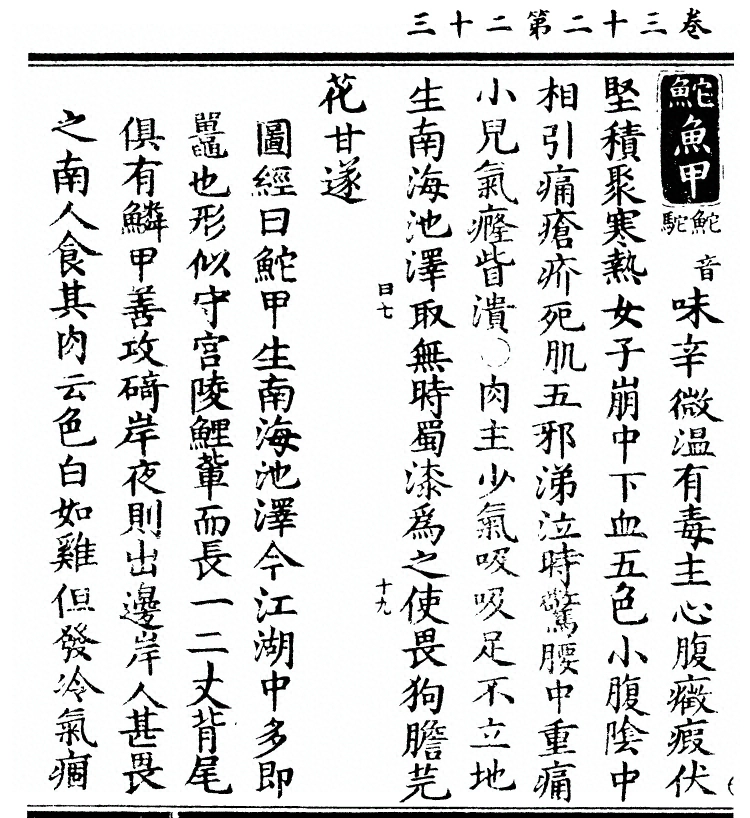 卷三十二第二十三
鮀魚甲 音鮀駝 味辛微温有毒主心腹癥瘕伏
堅積聚寒熱女子崩中下血五色小腹陰中
相引痛瘡疥死肌五邪涕泣時驚腰中重痛
小兒氣癃眥潰〇肉主少氣吸吸足不立地
生南海池澤取無時蜀漆爲之使畏狗膽芫
日七
十九
花甘遂
圖經曰鮀甲生南海池澤今江湖中多即
鼉也形似守宫陵鯉輩而長一二丈背尾
俱有鱗甲善攻碕岸夜則出邊岸人甚畏
之南人食其肉云色白如雞但發冷氣痼